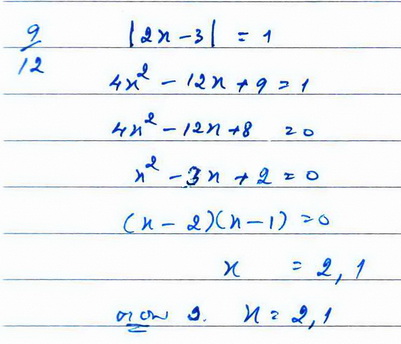 9/12 |2x-3| = 1
4x² - 12x + 9 = 1
4x² - 12x + 8 = 0
x² - 3x + 2 = 0
(x-2)(x-1) = 0
x = 2, 1
x = 2, 1